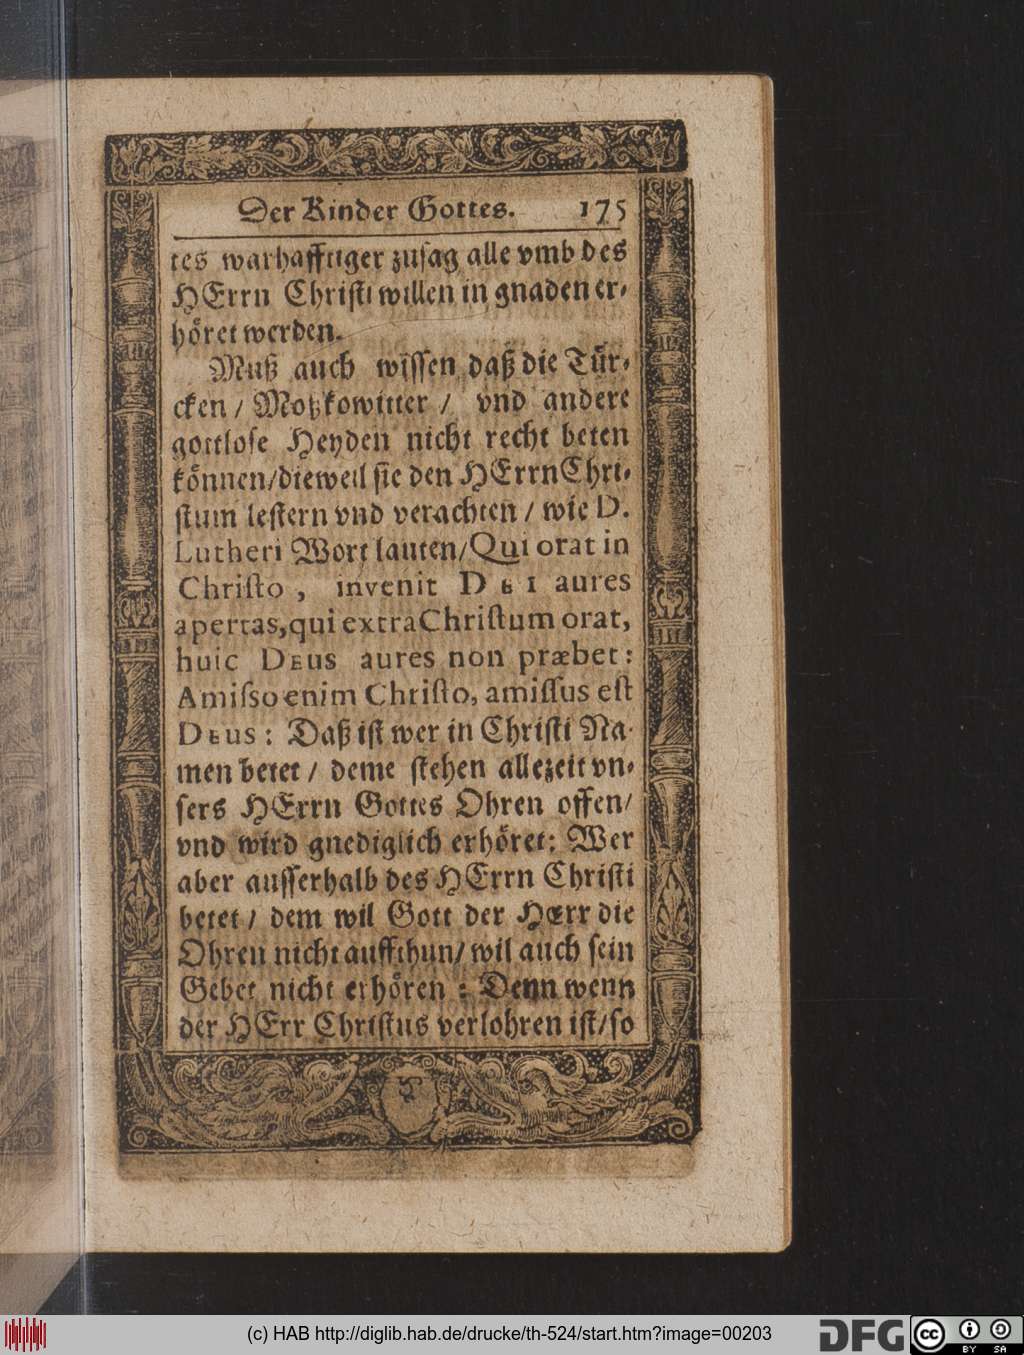 Der Kinder Gottes. 175
tes warhafftiger zusag alle vmb des
HErrn Christi willen in gnaden er-
höret werden.
Muß auch wissen daß die Tür-
cken / Moßkowitter / vnd andere
gottlose Heyden nicht recht beten
können/dieweil sie den HErrn Chri-
stum lestern vnd verachten / wie D.
Lutheri Wort lauten/Qui orat in
Christo , invenit DEI aures
apertas,qui extra Christum orat,
huic DEUS aures non præbet:
Amisso enim Christo, amissus est
DEUS: Daß ist wer in Christi Na-
men betet / deme stehen allezeit vn-
sers HErrn Gottes Ohren offen/
vnd wird gnediglich erhöret: Wer
aber ausserhalb des HErrn Christi
betet / dem wil Gott der HERR die
Ohren nicht auffthun/ wil auch sein
Gebet nicht erhören : Denn wenn
der HErr Christus verlohren ist/so
(c) HAB http://diglib.hab.de/drucke/th-524/start.htm?image=00203
DFG
cc BY SA